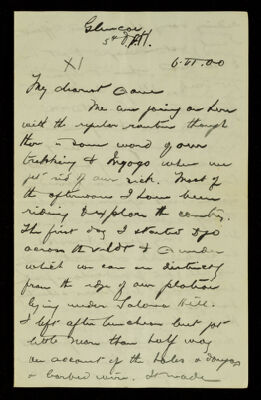 Glencoe
5th
XI
6.VI.00
My dearest
We are going on here
with the regular routine though
there is some word of our
trekking to Ingogo when we
get rid of our sick. Most of
the afternoons I have been
riding to explore the country.
The first day I started to go
across the veldt to
which we can see distinctly
from the edge of our plateau
lying under Talana Hill.
I left after luncheon but got
little more than half way
on account of the holes & dongas
& barbed wire. I made